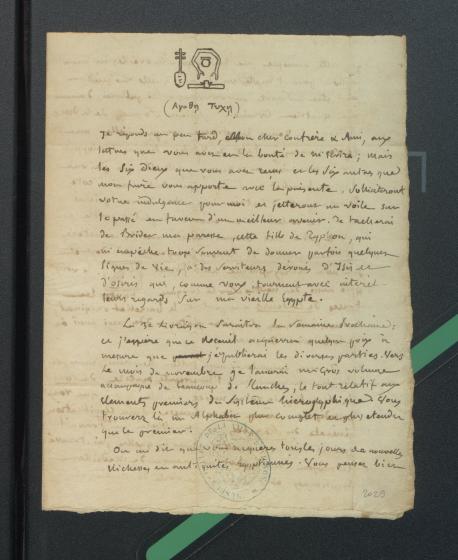 (Αγαθη Τυχη)
Je réponds un peu tard, mon cher Confrère & Ami, aux
lettres que vous avez eu la bonté de m'écrire ; mais
les six dieux que vous avez reçus et les six autres que
mon frère vous apporte avec la présente, solliciteront
votre indulgence pour moi et jetteront un voile sur
le passé en faveur d'un meilleur avenir. Je tacherai
de brider ma paresse, cette fille de Typhon, qui
m'empêche trop souvent de donner parfois quelques
signes de vie, à des serviteurs dévoués d'Isis et
d'Osiris qui, comme vous, tournent avec intérêt
leurs regards sur ma vieille Egypte.
La 3e livraison paraitra la semaine prochaine ;
et j'espère que ce recueil acquerrera quelque prix à
mesure que j'epublierai les diverses parties. Vers
le mois de novembre je fournirai un gros volume
accompagné de beaucoup de planches, le tout relatif aux
éléments premiers du système hieroglyphique. Vous
trouverez là un Alphabet plus complet et plus étendu
que le premier.
On me dit que vous acquérez tous les jours de nouvelles
richesses en antiquités égyptiennes. Vous pensez bien
2029